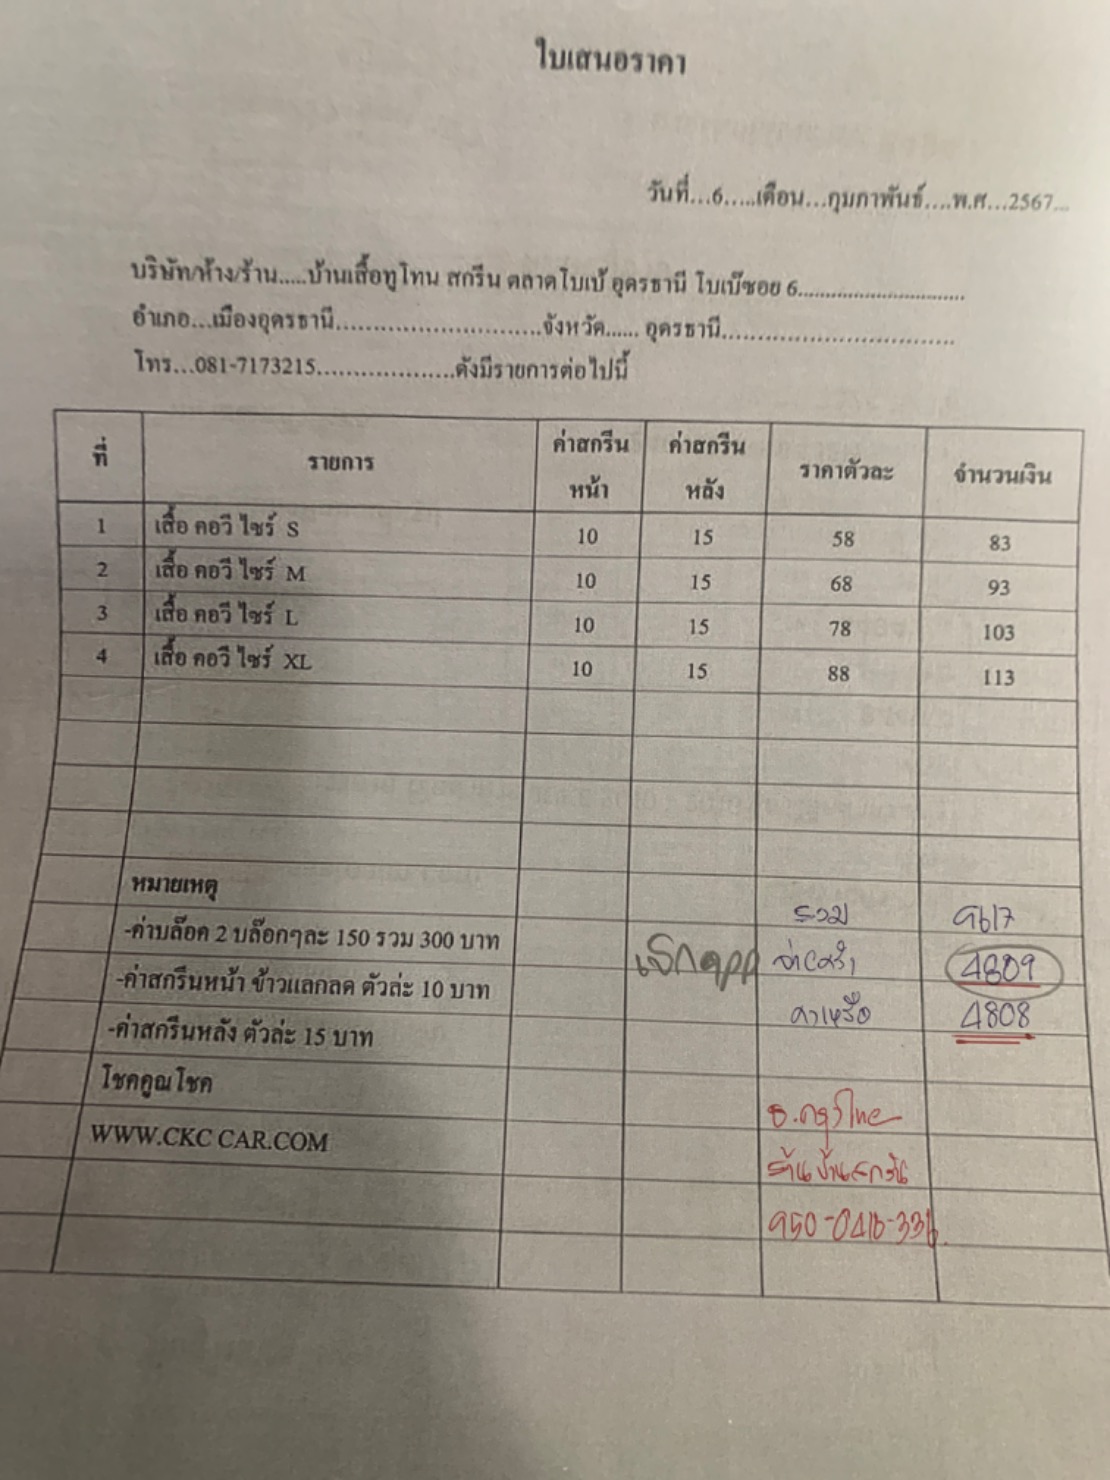 ใบเสนอราคา
วันที่...6.....เดือน...กุมภาพันธ์....พ.ศ...2567...
บริษัท/ห้าง/ร้าน.....บ้านเสื้อทูโทน สกรีน ตลาดโบเบ้ อุดรธานี โบเบ๊ซอย 6..............................
อำเภอ...เมืองอุดรธานี............................จังหวัด...... อุดรธานี................................
โทร...081-7173215...................ดังมีรายการต่อไปนี้
ที่ รายการ ค่าสกรีนหน้า ค่าสกรีนหลัง ราคาตัวละ จำนวนเงิน
1 เสื้อ คอวี ไซร์ S 10 15 58 83
2 เสื้อ คอวี ไซร์ M 10 15 68 93
3 เสื้อ คอวี ไซร์ L 10 15 78 103
4 เสื้อ คอวี ไซร์ XL 10 15 88 113
หมายเหตุ
-ค่าบล๊อค 2 บล๊อกๆละ 150 รวม 300 บาท รวม 9617
-ค่าสกรีนหน้า ข้าวแลกลด ตัวล่ะ 10 บาท 4809
-ค่าสกรีนหลัง ตัวล่ะ 15 บาท 4808
โชคคูณโชค
WWW.CKC CAR.COM ธ.กรุงไทย
950-0416-336